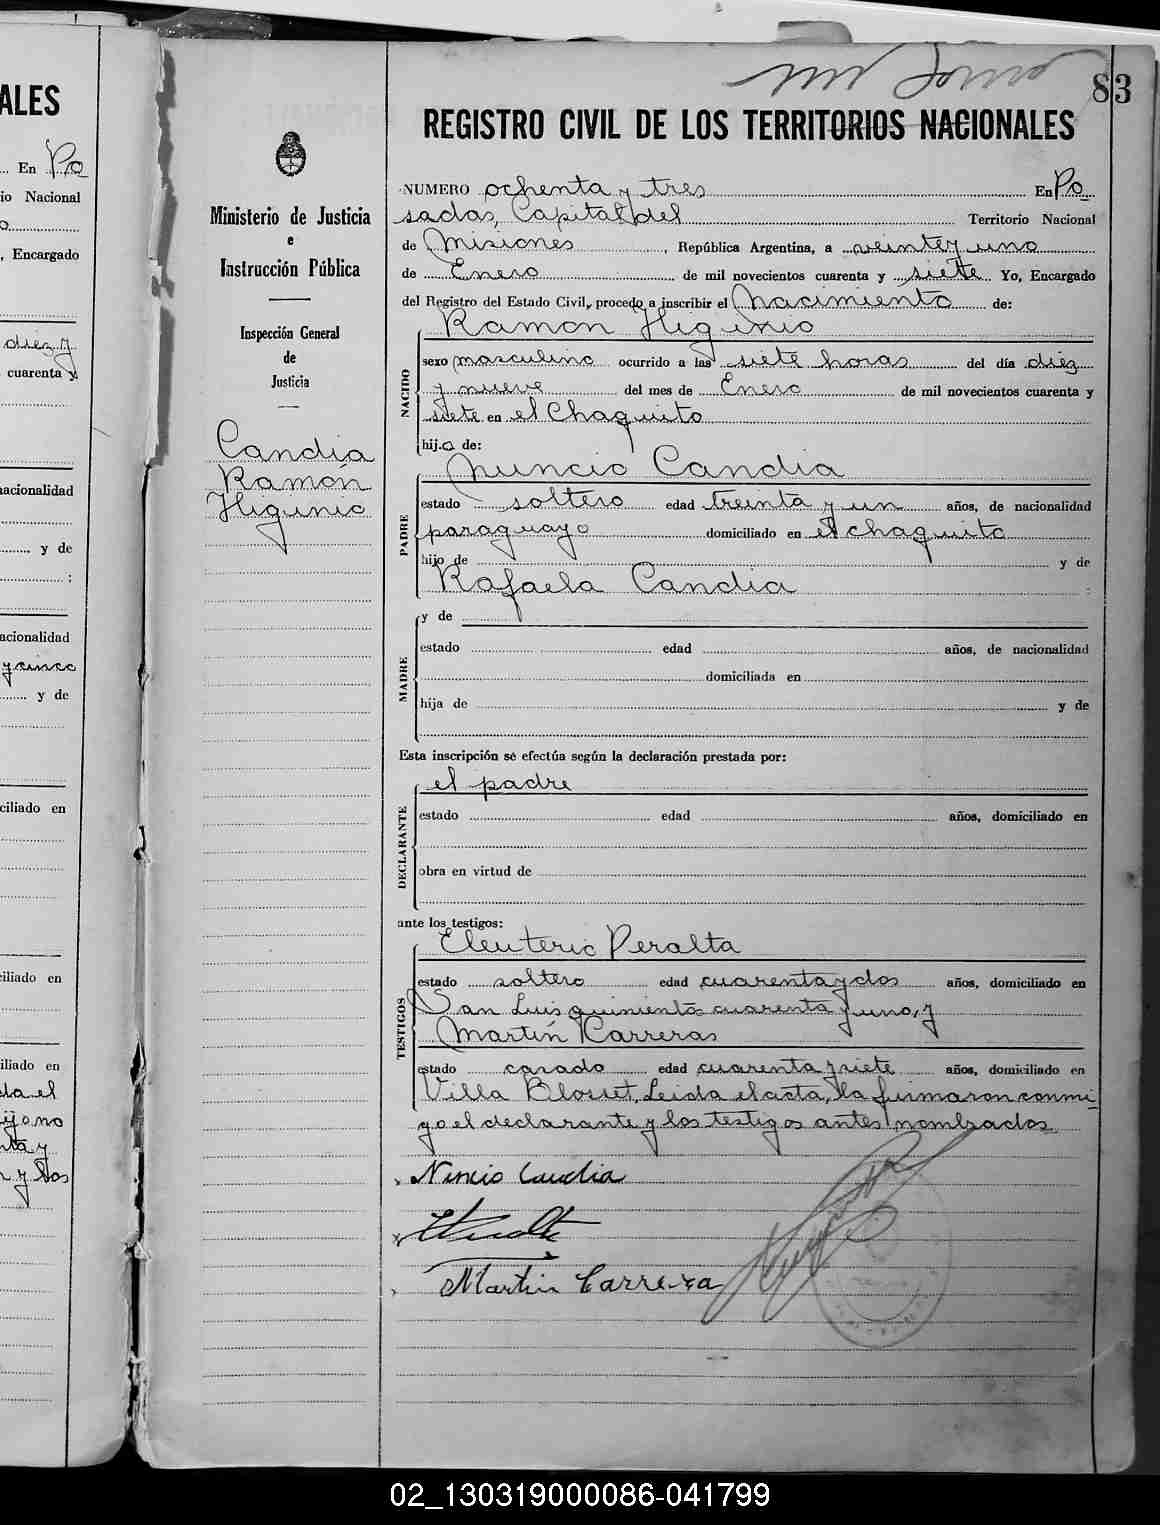 ALES
En Po
io Nacional
, Encargado
diez y
cuarenta y
nacionalidad
y de
:
acionalidad
y cinco
y de
ciliado en
ciliado en
iliado en
da el
ijo no
nta y
n y los
83
REGISTRO CIVIL DE LOS TERRITORIOS NACIONALES
Ministerio de Justicia
e
Instrucción Pública
Inspección General
de
Justicia
Candia
Ramón
Higinio
NUMERO ochenta y tres En Po
sadas, Capital del Territorio Nacional
de Misiones, República Argentina, a veinte y uno
de Enero de mil novecientos cuarenta y siete Yo, Encargado
del Registro del Estado Civil, procedo a inscribir el Nacimiento de:
NACIDO
Ramon Higinio
sexo masculino ocurrido a las siete horas del día diez
y nueve del mes de Enero de mil novecientos cuarenta y
siete en el Chaquito
hijo de:
PADRE
Nuncio Candia
estado soltero edad treinta y un años, de nacionalidad
paraguayo domiciliado en el chaquito
hijo de y de
Rafaela Candia :
MADRE
y de
estado edad años, de nacionalidad
domiciliada en
hija de y de
Esta inscripción se efectúa según la declaración prestada por:
DECLARANTE
el padre
estado edad años, domiciliado en
obra en virtud de
ante los testigos:
TESTIGOS
Eleuterio Peralta
estado soltero edad cuarenta y dos años, domiciliado en
San Luis quinientos cuarenta y uno, y
Martín Carreras
estado casado edad cuarenta y siete años, domiciliado en
Villa Blosset, Leida el acta, la firmaron conmi-
go el declarante y los testigos antes nombrados
Nuncio Candia
Martin Carrera
02_130319000086-041799